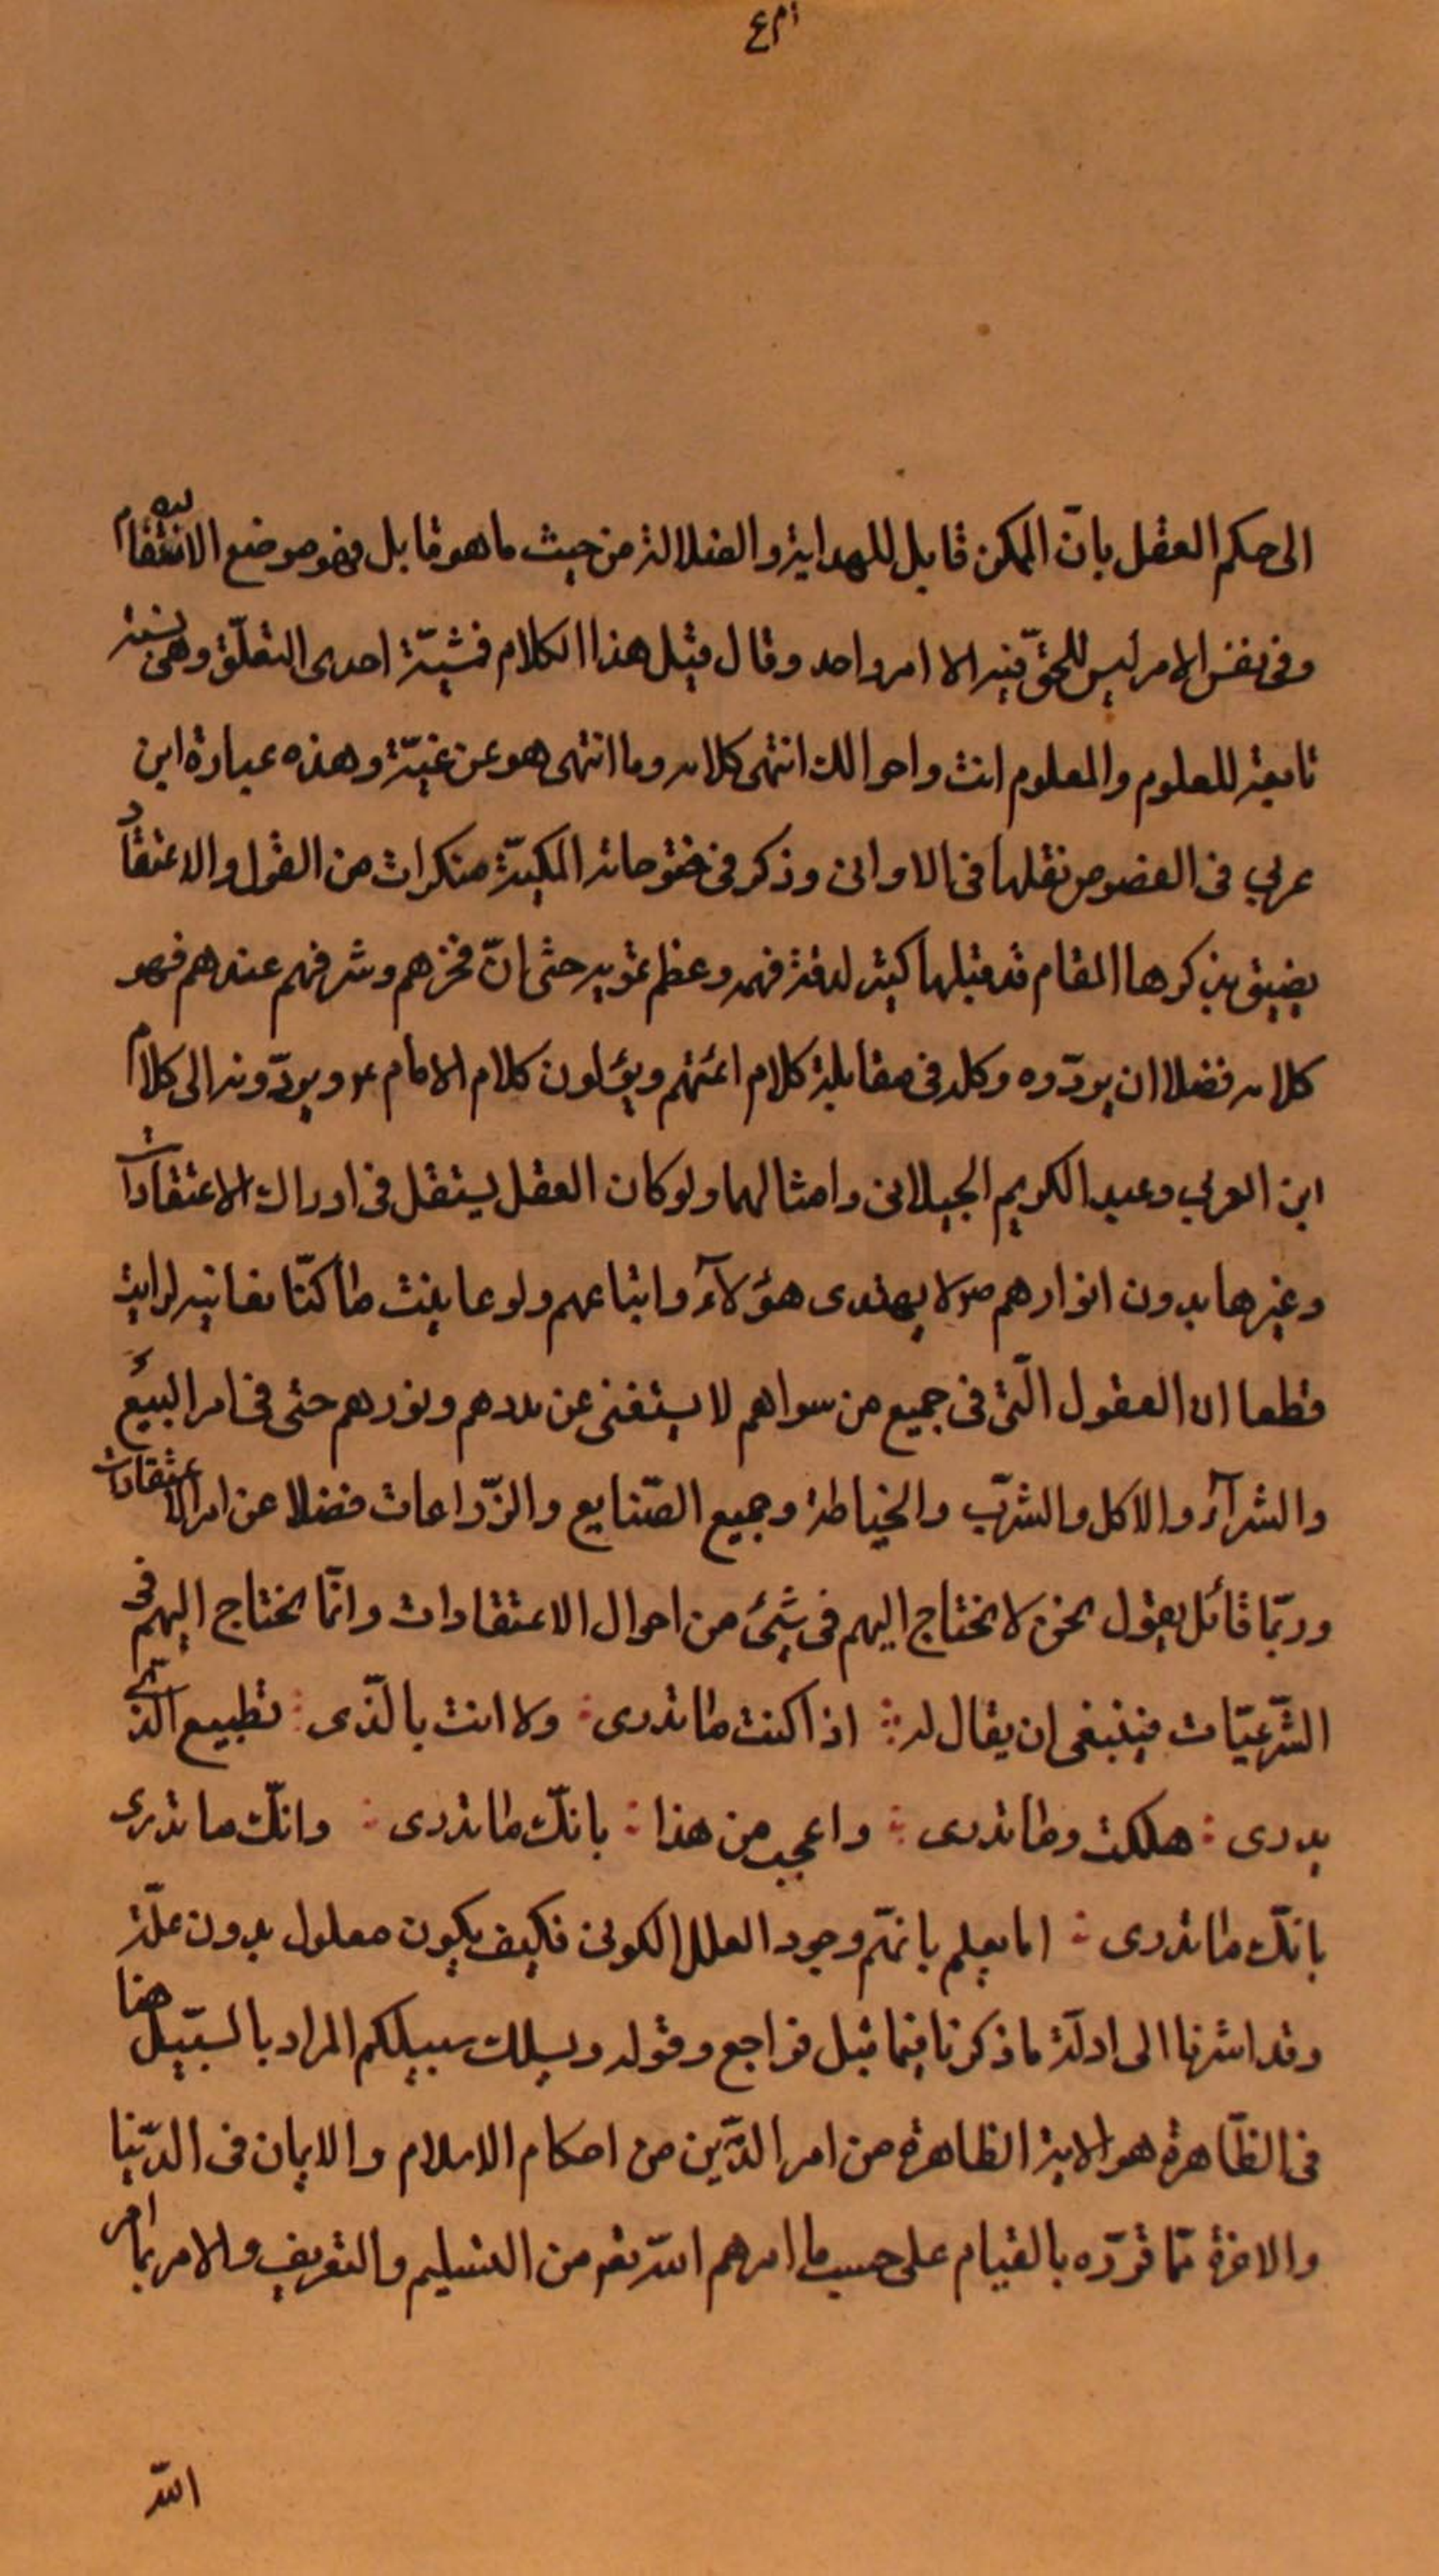 ٤٣١
الى حكم العقل بانّ الممكن قابل للهداية والضلالة من حيث ما هو قابل فهو موضع الانقسام
وفى نفس الامر ليس للحقّ فيه الا امر واحد وقال قبل هذا الكلام فمشيّة احدى التعلّق وهى نسبة
تابعة للعلوم والمعلوم انت واحوالك انتهى كلامه وما انتهى هو عن غيّه وهذه عبارة ابن
عربي فى الفصوص نقلها فى الاوانى وذكر فى فتوحاته المكيّة منكرات من القول والاعتقاد
يضيق بذكرها المقام قد قبلها كثير لدقة فهمه وعظم تمويهه حتى انّ فخرهم وشرفهم عندهم فهو
كلامه فضلا ان يردّوه وكله فى مقابلة كلام ائمتهم ويؤلون كلام الامام ع ويردّونه الى كلام
ابن العربي وعبد الكريم الجيلانى وامثالهما ولو كان العقل يستقل فى ادراك الاعتقادات
وغيرها بدون انوارهم ص لا يهتدى هؤلآء واتباعهم ولو عاينت ما كنّا نعاينه لرايت
قطعا ان العقول الّتى فى جميع من سواهم لا يستغنى عن مددهم ونورهم حتى فى امر البيع
والشرآء والاكل والشرب والخياطة وجميع الصّنايع والزّراعات فضلا عن امر الاعتقادات
وربّما قائل يقول نحن لا نحتاج اليهم فى شئ من احوال الاعتقادات وانّما نحتاج اليهم فى
الشّرعيّات فينبغى ان يقال له ∴ اذا كنت ما تدرى ∴ ولا انت بالّذى ∴ تطيع الّذى
يدرى ∴ هلكت وما تدرى ∴ واعجب من هذا ∴ بانّك ما تدرى ∴ وانّك ما تدرى
بانّك ما تدرى ∴ اما يعلم بانّهم وجود العلل الكونى فكيف يكون معلول بدون علّة
وقد اشرنا الى ادلّة ما ذكرنا فيما قبل فراجع وقوله ويسلك سبيلكم المراد بالسّبيل هنا
فى الظّاهرة هو الاية الظاهرة من امر الدّين من احكام الاسلام والايمان فى الدّنيا
والاخرة ممّا قرّره بالقيام على حسب ما امرهم اللّه تعم من التسليم والتعريف والامر بما امر
اللّه